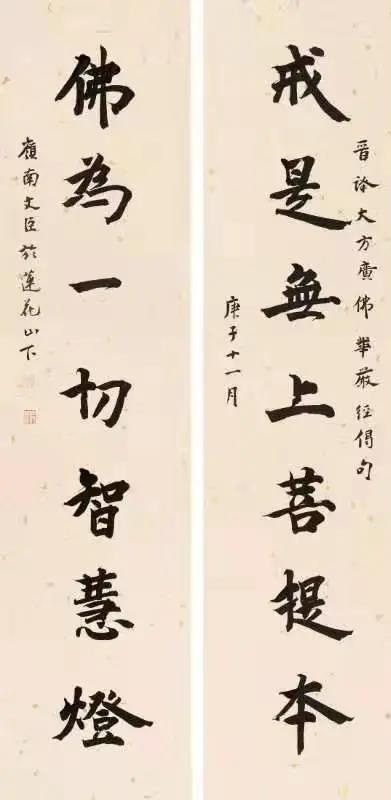 晋譯大方廣佛華嚴經偈句
戒是無上菩提本
庚子十一月
佛為一切智慧燈
嶺南文臣於蓮花山下